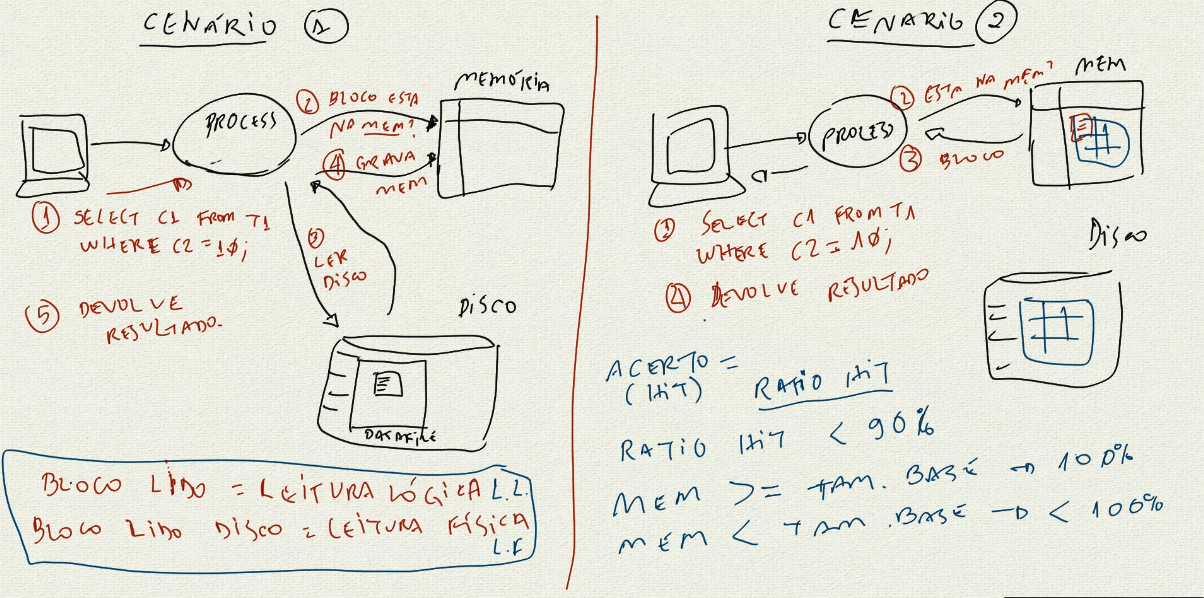 CENÁRIO 1
PROCESS
MEMÓRIA
2 BLOCO ESTA
NA MEM?
4 GRAVA
MEM
1 SELECT C1 FROM T1
WHERE C2 = 10;
3
LER
DISCO
5 DEVOLVE
RESULTADO.
DISCO
DATAFILE
BLOCO LIDO = LEITURA LÓGICA L.L.
BLOCO LIDO DISCO = LEITURA FÍSICA
L.F
CENARIO 2
MEM
2 ESTA NA MEM?
PROCESO
3 BLOCO
1 SELECT C1 FROM T1
WHERE C2 = 10;
4 DEVOLVE RESULTADO
DISCO
ACERTO =
(HIT) RATIO HIT
RATIO HIT < 90%
MEM >= TAM. BASE → 100%
MEM < TAM. BASE → < 100%